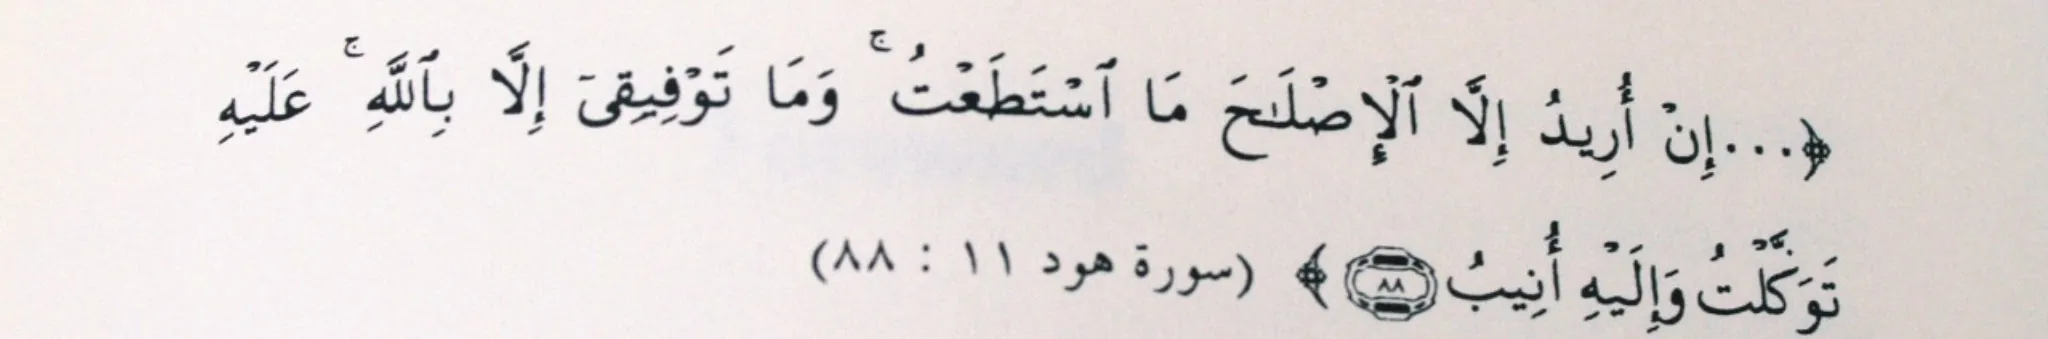 ﴿...إِنْ أُرِيدُ إِلَّا ٱلْإِصْلَٰحَ مَا ٱسْتَطَعْتُ ۚ وَمَا تَوْفِيقِىٓ إِلَّا بِٱللَّهِ ۚ عَلَيْهِ
تَوَكَّلْتُ وَإِلَيْهِ أُنِيبُ ٨٨ ﴾ (سورة هود ١١ : ٨٨)